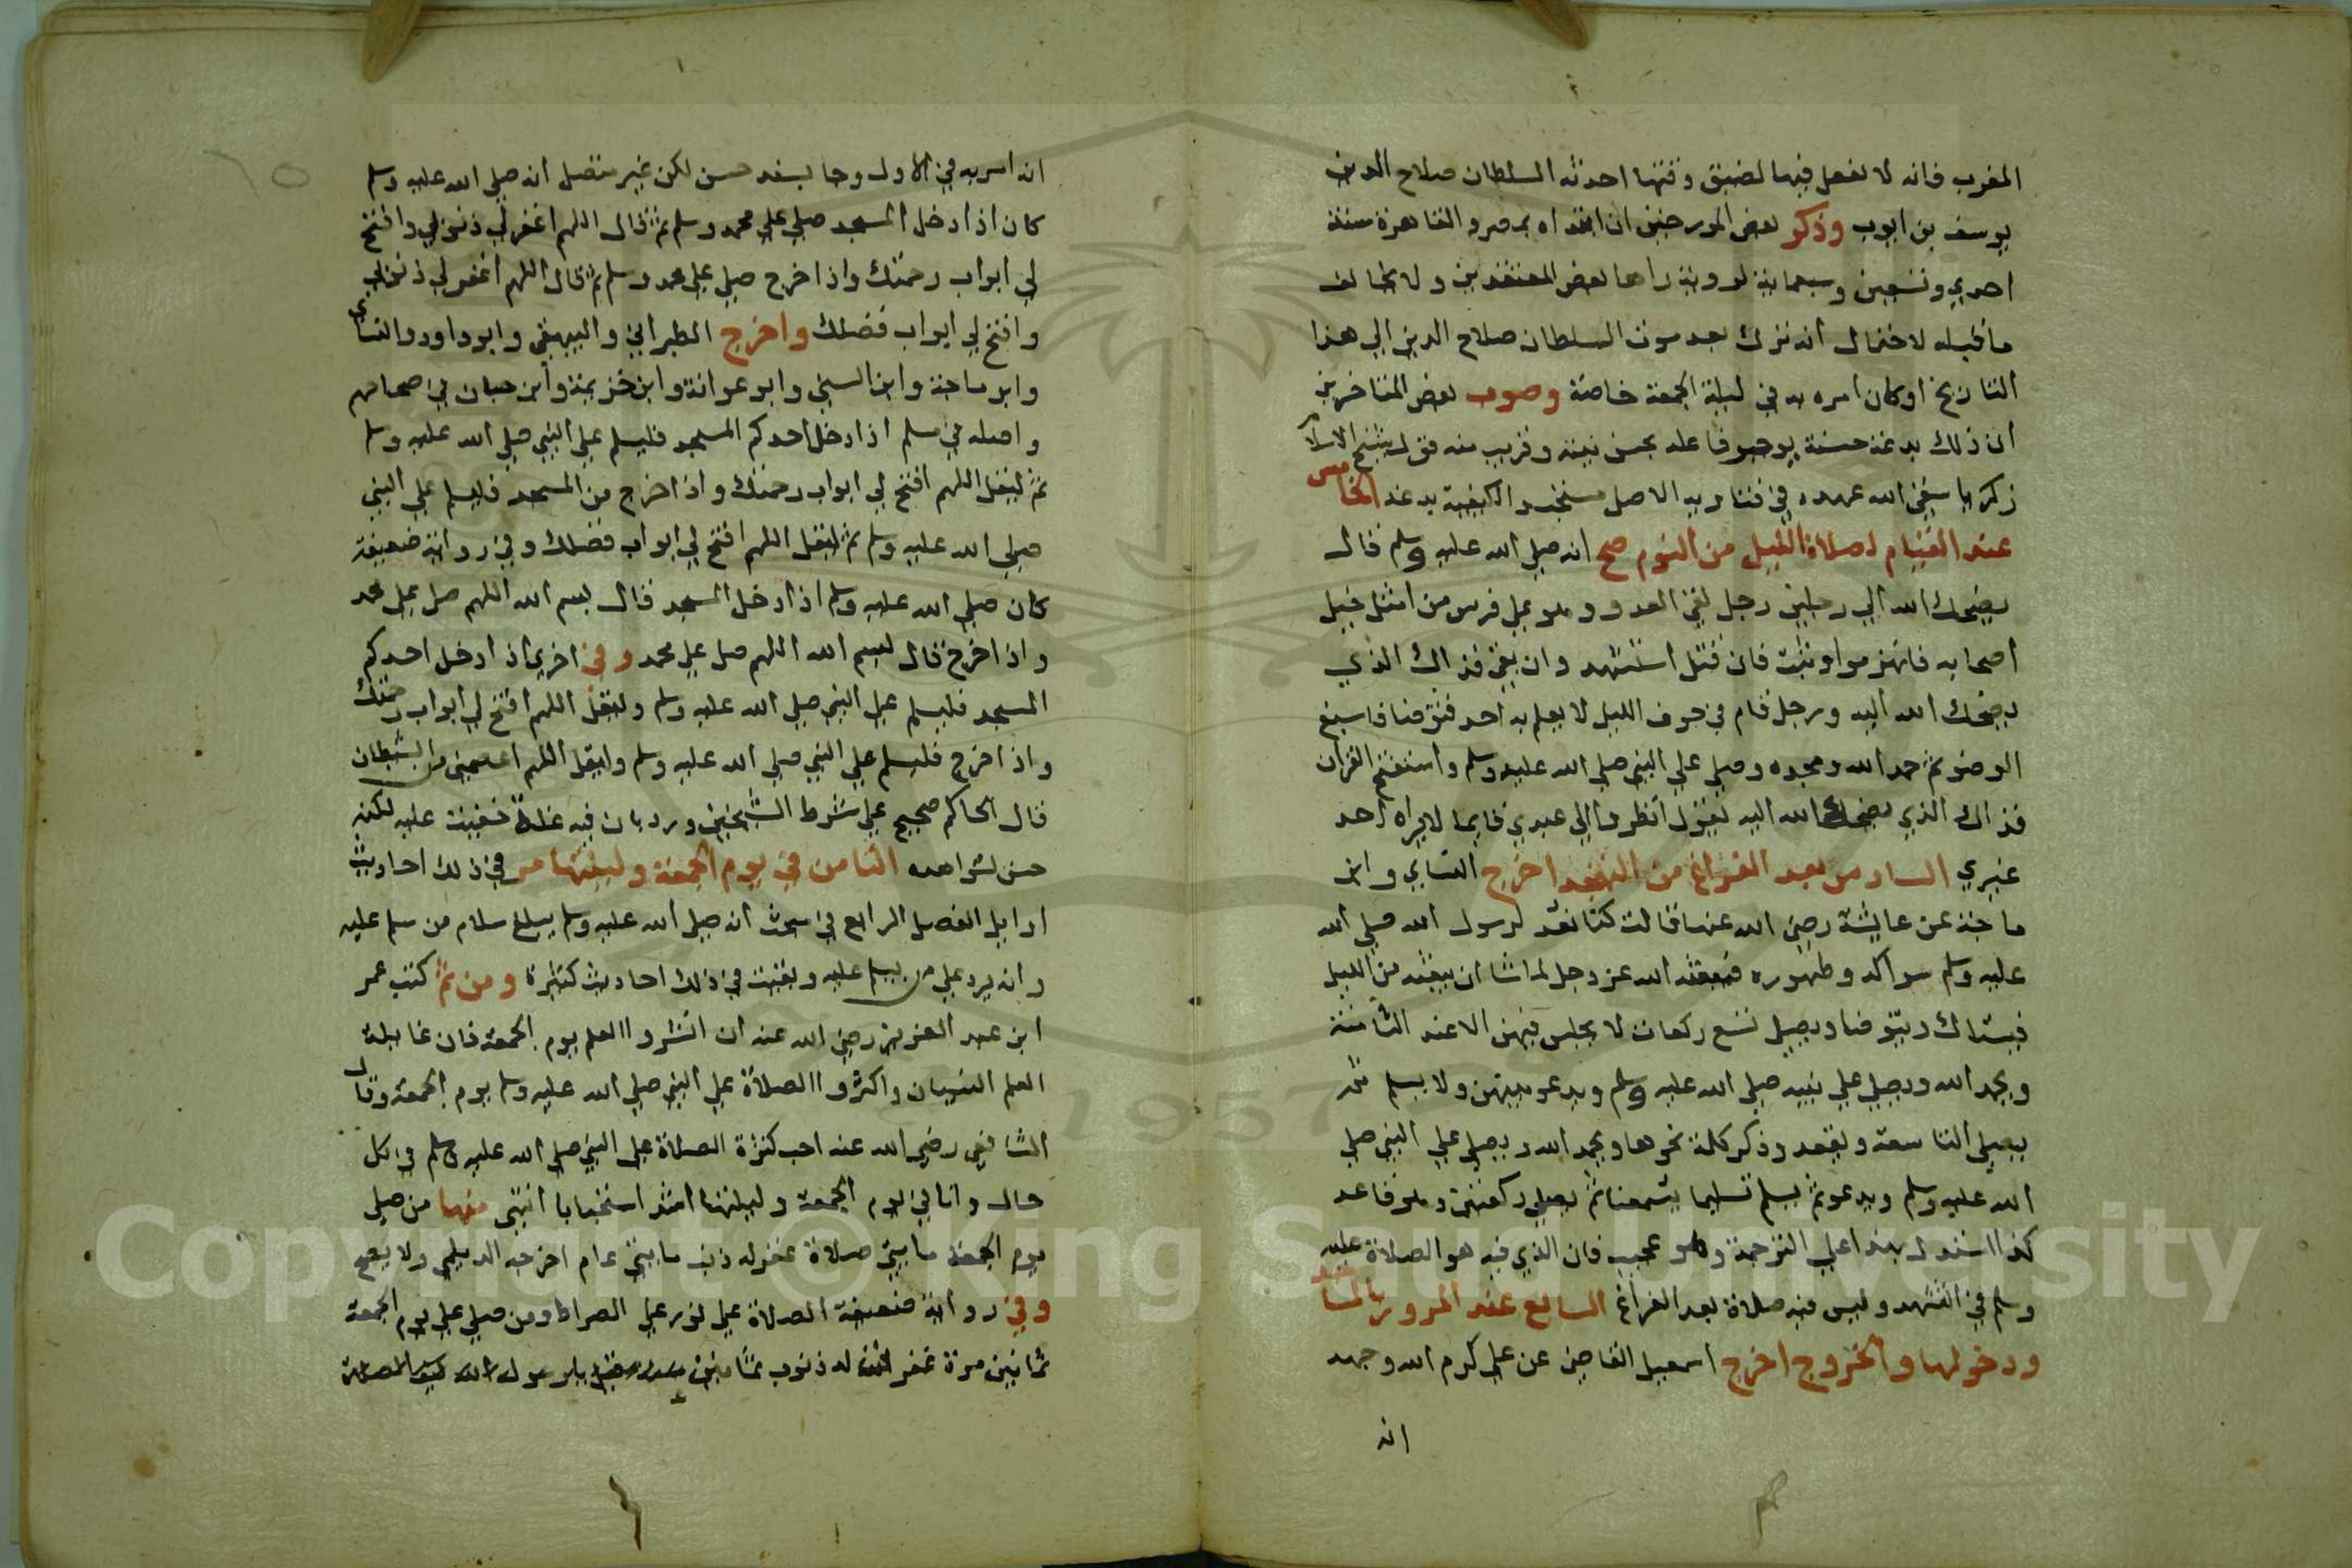 المغرب فانه لا يفعل فيها لضيق وقتها احدثه السلطان صلاح الدين
يوسف بن ايوب وذكر بعض المورخين ان ابتداه بمصر والقاهرة سنة
احدي وتسعين وسبعماية لروية راها بعض المعتقدين ولا يخالف
ما قبله لاحتمال انه ترك بعد موت السلطان صلاح الدين الي هذا
التاريخ او كان امره به في ليلة الجمعة خاصة وصوب بعض المتاخرين
ان ذلك بدعة حسنة يوجر فاعله بحسن نيته وقريب منه قول شيخ الاسلام
زكريا سقي الله عهده في فتاويه الاصل مستحب والكيفية بدعة الخامس
عند القيام لصلاة الليل من النوم صح انه صلي الله عليه وسلم قال
يضحك الله الي رجلين رجل لقي العدو وهو علي فرس من امثل خيل
اصحابه فانهزموا وثبت فان قتل استشهد وان بقي فذاك الذي
يضحك الله اليه ورجل قام في جوف الليل لا يعلم به احد فتوضا فاسبغ
الوضو ثم حمد الله ومجده وصلي علي النبي صلي الله عليه وسلم واستفتح القران
فذاك الذي يضحك الله اليه يقول انظروا الي عبدي قايما لا يراه احد
غيري السادس بعد الفراغ من التهجد اخرج النساي وابن
ماجة عن عايشة رضي الله عنها قالت كنا نعد لرسول الله صلي الله
عليه وسلم سواكه وطهوره فيبعثه الله عز وجل لما شا ان يبعثه من الليل
فيستاك ويتوضا ويصلي تسع ركعات لا يجلس فيهن الا عند الثامنة
ويحمد الله ويصلي علي نبيه صلي الله عليه وسلم ويدعو بينهن ولا يسلم ثم
يصلي التاسعة ويقعد وذكر كلمة نحوها ويحمد الله ويصلي علي النبي صلي
الله عليه وسلم ويدعو ثم يسلم تسليما يسمعنا ثم يصلي ركعتين وهو قاعد
كذا استدل بهذا علي الترجمة وهو عجيب فان الذي فيه هو الصلاة عليه
وسلم في التشهد وليس فيه صلاة بعد الفراغ السابع عند المرور بالمساجد
ودخولها والخروج اخرج اسمعيل القاضي عن علي كرم الله وجهه
انه
انه امر به في الاول وجا بسند حسن لكن غير متصل انه صلي الله عليه وسلم
كان اذا دخل المسجد صلي علي محمد وسلم ثم قال اللهم اغفر لي ذنوبي وافتح
لي ابواب رحمتك واذا خرج صلي علي محمد وسلم ثم قال اللهم اغفر لي ذنوبي
وافتح لي ابواب فضلك واخرج الطبراني والبيهقي وابو داود والنساي
وابن ماجة وابن السني وابو عوانة وابن خزيمة وابن حبان في صحاحهم
واصله في مسلم اذا دخل احدكم المسجد فليسلم علي النبي صلي الله عليه وسلم
ثم ليقل اللهم افتح لي ابواب رحمتك واذا خرج من المسجد فليسلم علي النبي
صلي الله عليه وسلم ثم ليقل اللهم افتح لي ابواب فضلك وفي رواية ضعيفة
كان صلي الله عليه وسلم اذا دخل المسجد قال بسم الله اللهم صل علي محمد
واذا خرج قال بسم الله اللهم صل علي محمد وفي اخري اذا دخل احدكم
المسجد فليسلم علي النبي صلي الله عليه وسلم وليقل اللهم افتح لي ابواب رحمتك
واذا خرج فليسلم علي النبي صلي الله عليه وسلم وليقل اللهم اعصمني من الشيطان
قال الحاكم صحيح علي شرط الشيخين ورد بان فيه علة خفيت عليه لكنه
حسن لشواهده الثامن في يوم الجمعة وليلتها مر في ذلك احاديث
اوايل الفصل الرابع في مبحث انه صلي الله عليه وسلم يبلغ سلام من سلم عليه
وانه يرد علي من يسلم عليه وبقيت في ذلك احاديث كثيرة ومن ثم كتب عمر
ابن عبد العزيز رضي الله عنه ان انشروا العلم يوم الجمعة فان غايلة
العلم النسيان واكثروا الصلاة علي النبي صلي الله عليه وسلم يوم الجمعة وقال
الشافعي رضي الله عنه احب كثرة الصلاة علي النبي صلي الله عليه وسلم في كل
حال وانا في يوم الجمعة وليلتها اشد استحبابا انتهي منها من صلي
يوم الجمعة مايتي صلاة غفر له ذنب مايتي عام اخرجه الديلمي ولا يصح
وفي رواية ضعيفة الصلاة علي نور علي الصراط ومن صلي علي يوم الجمعة
ثمانين مرة غفر الله له ذنوب ثمانين سنة قيل يا رسول الله كيف الصلاة
Copyright © King Saud University
1957